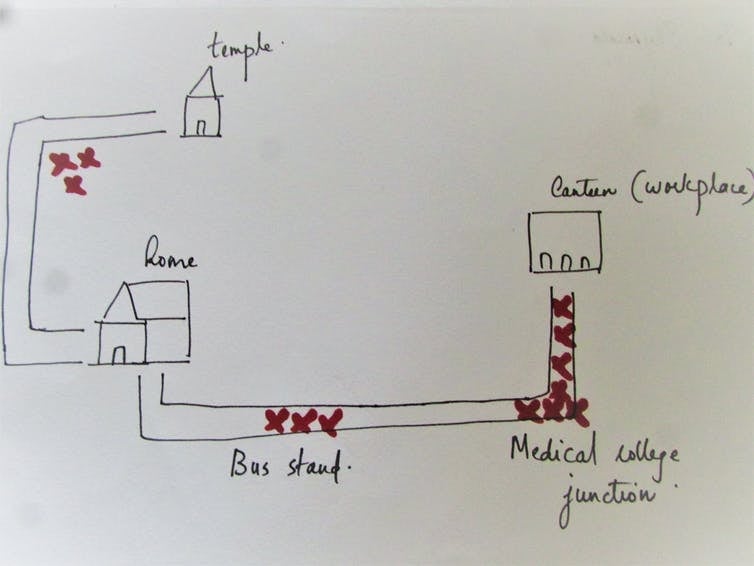 temple.
Canteen (workplace)
home
Bus stand.
Medical college
junction.